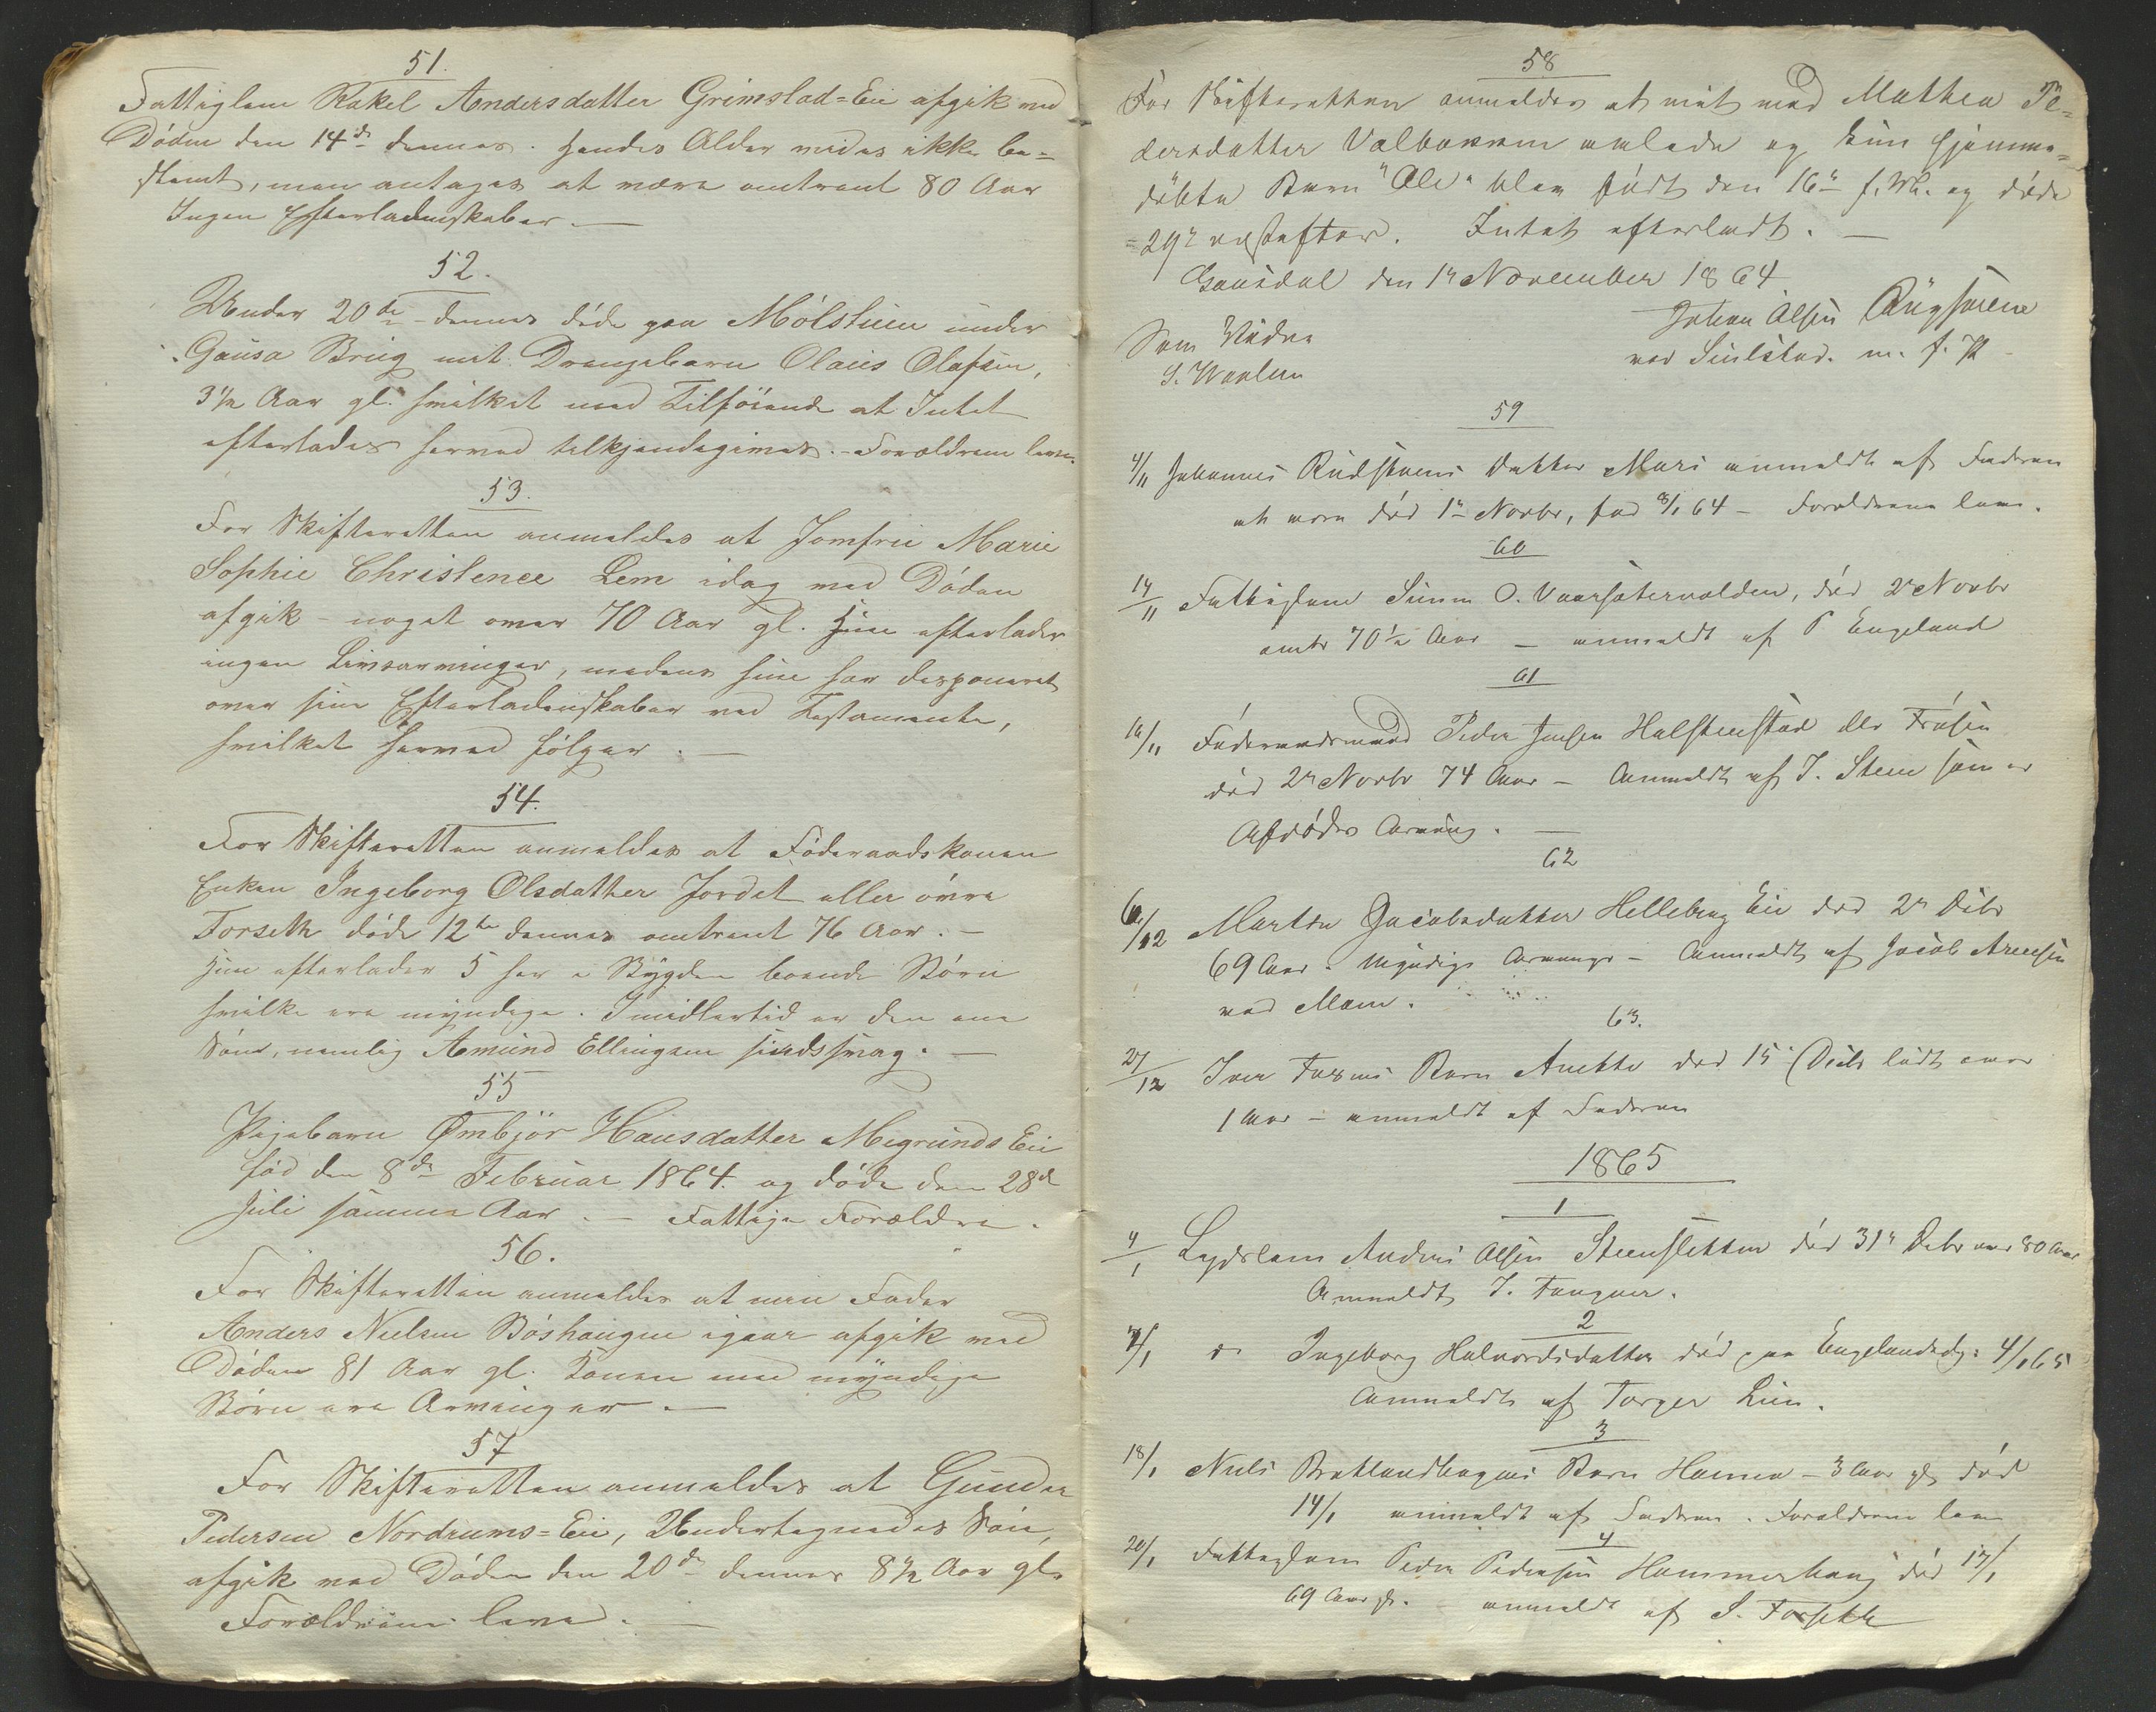 51.
Fattiglem Rakel Andersdatter Grimstad=Eie afgik ved
Döden den 14de dennes. Hendes Alder vides ikke be=
stemt, men antages at være omtrent 80 Aar
Ingen Efterladenskaber. —
52.
Under 20de dennes döde paa Mölstuen under
Gausa Brug mit Drengebarn Olaus Olafsen,
3½ Aar gl. hvilket med Tilföiende at Intet
efterlades herved tilkjendegives. - Forældrene leve.
53.
For Skifteretten anmeldes at Jomfru Marie
Sophie Christence Lem idag ved Döden
afgik - noget over 70 Aar gl. Hun efterlader
ingen Livsarvinger, medens hun har desponeret
over sine Efterladenskaber ved Testamente,
hvilket herved fölger. —
54.
For Skifteretten anmeldes at Föderaadskonen
Enken Ingeborg Olsdatter Jordet eller övre
Forseth döde 12te dennes omtrent 76 Aar. -
Hun efterlader 5 her i Bygden boende Börn
hvilke ere myndige. Imidlertid er den ene
Sön, nemlig Amund Ellingsen sindssvag. —
55
Pigebarn Ömbjör Hansdatter Megrunds Eie
föd den 8de Februar 1864. og döde den 28de
Juli samme Aar. — Fattige Forældre.
56.
For Skifteretten anmeldes at min Fader
Anders Nielsen Böshaugen igaar afgik ved
Döden 81 Aar gl. Konen med myndige
Börn ere Arvinger. —
57
For Skifteretten anmeldes at Gunder
Pedersen Nordrums=Eie, Undertegnedes Sön,
afgik ved Döden den 20de dennes 8½ Aar gl.
Forældrene leve. —
58
For Skifteretten anmeldes at mit med Mathea Pe=
dersdatter avlede og kun hjemme=
döbte Barn "Ole" blev födt den 16de f. M. og döde
29de næstefter. Intet efterladt. —
Gausdal den 1ste November 1864
Johan Olsen
Som Vidne
ved m. f. P
59
4/11 Johannes Rudstuens Datter Mari anmeldt af Faderen
at være död 1ste Novbr, fød 8/1 64 - Forældrene leve.
60
14/11 Fattiglem O. död 2de Novbr
omtr 70½ Aar - anmeldt af P Engeland
61
16/11 Föderaadsmand Peder Jensen Halstenstad eller Frösen
död 2de Novbr 74 Aar - Anmeldt af J. Steen som er
Afdödes Arving. —
62
6/12 Marthe Jacobsdatter Helleberg Eie död 2de Debr
69 Aar. Myndige Arvinger - Anmeldt af Jacob Arnesen
ved Moen.
63.
27/12 Iver Barn Anette död 15de Decbr lidt over
1 Aar - anmeldt af Faderen
1865
1
4/1 Lægdslem Anders Olsen Steensletten död 31te Debr over 80 Aar
Anmeldt J.
2
7/1 do Ingeborg Halvordsdatter död paa 4/1 65
Anmeldt af Torger Lien.
3
18/1 Niels Barn Hanna - 3 Aar gl. död
14/1 anmeldt af Faderen. Forældrene leve
4
20/1 Fattiglem Peder Pedersen Hammerhaug död 17/1
69 Aar gl. - anmeldt af S. Forseth